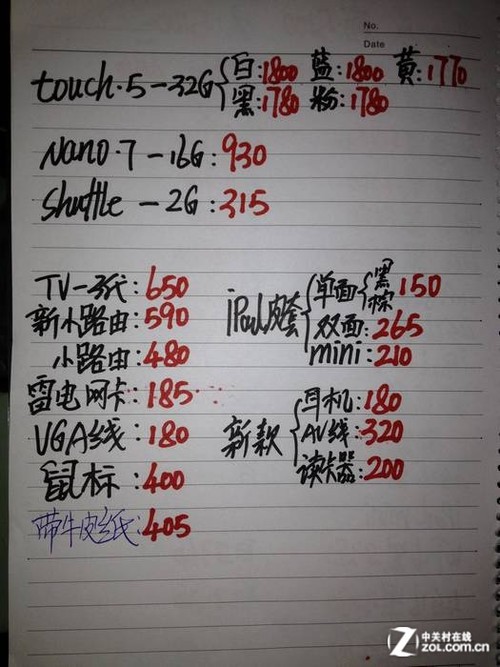 No.
Date
touch.5-32G{白:1800 蓝:1800 黄:1770
黑:1780 粉:1780
Nano.7-16G:930
Shuffle-2G:315
TV-3代:650
新小路由:590
小路由:480
雷电网卡:185
VGA线:180
鼠标:400
带牛皮纸:405
iPad皮套{单面{黑
棕150
双面:265
mini:210
新款{耳机:180
AV线:320
读卡器:200
中关村在线
ZOL.COM.CN